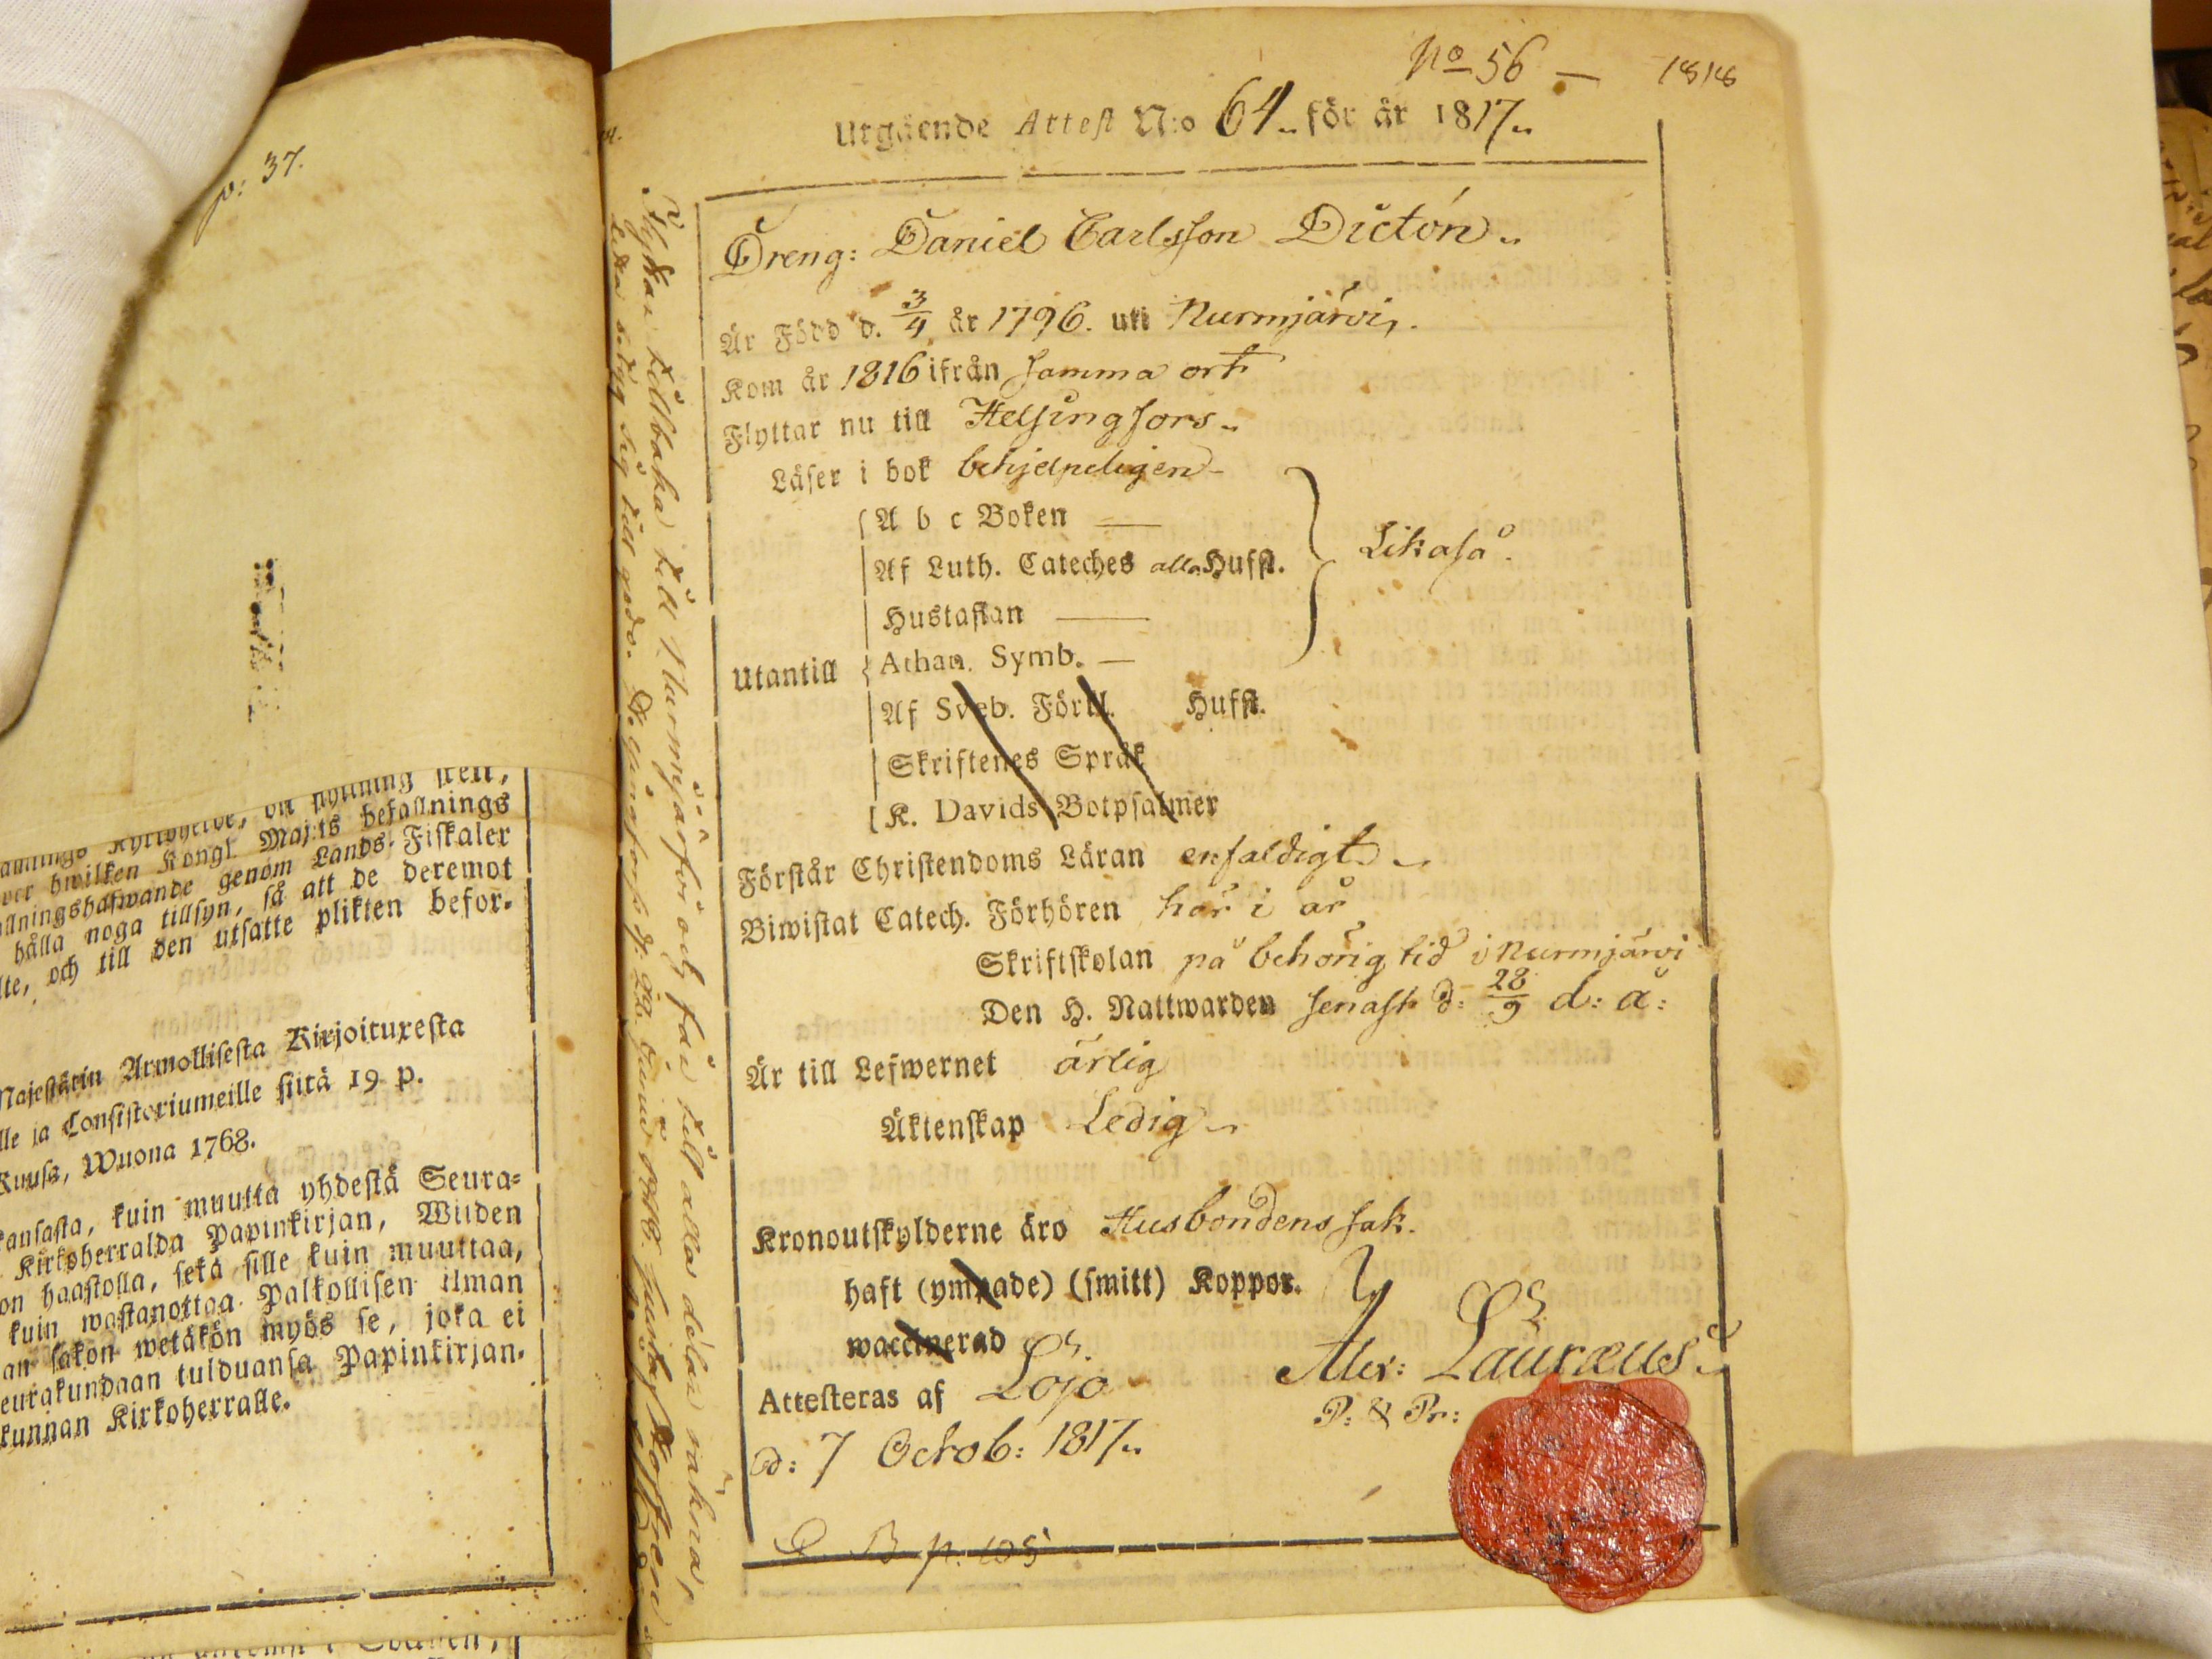 p: 37.
hwilken Kongl. Maj:ts befallnings
genom Lands-Fiskaler
hålla noga tillsyn, så att de deremot
och till den utsatte plikten befor-
Majestätin Armollisesta Kirjoituxesta
ja Consistoriumeille siitä 19 p.
Kuusa, Wuona 1768.
kuin muutta yhdestä Seura-
Kirkoherralda Papinkirjan, Wiiden
haastolla, sekä sille kuin muuttaa,
kuin wastanottaa Palkollisen ilman
sakon wetäkön myös se, joka ei
tulduansa Papinkirjan-
Kirkoherralle.
No 56 —
1818
Utgående Attest N:o 64 för år 1817
Dreng: Daniel Carlsson Dictón
Är Född d. 3/4 år 1796. uti Nurmjärvi,
Kom år 1816 ifrån samma ort
Flyttar nu till Helsingfors
Läser i bok behjelpeligen
A b c Boken —
Af Luth. Cateches alla Hufst.
Likaså.
Hustaflan —
Utantill
Athan. Symb. —
Af Sveb. Förkl. Hufst.
Skriftenes Språk
K. Davids Botpsalmer
Förstår Christendoms Läran enfaldigt
Biwistat Catech. Förhören här i år
Skriftskolan på behörig tid i Nurmjärvi
Den H. Nattwarden senast d: 28/9 d: å:
Är till Lefwernet ärlig
Äktenskap Ledig
Kronoutskylderne äro Husbondens sak.
haft (ympade) (smitt) Koppor.
waccinerad
Attesteras af Lojo
d: 7 Octob: 1817
Alex: Lauræus
P: & Pr:
B p. 105
Flyttar tillbaka till Nurmijärfvi och får till alla delar räkna,